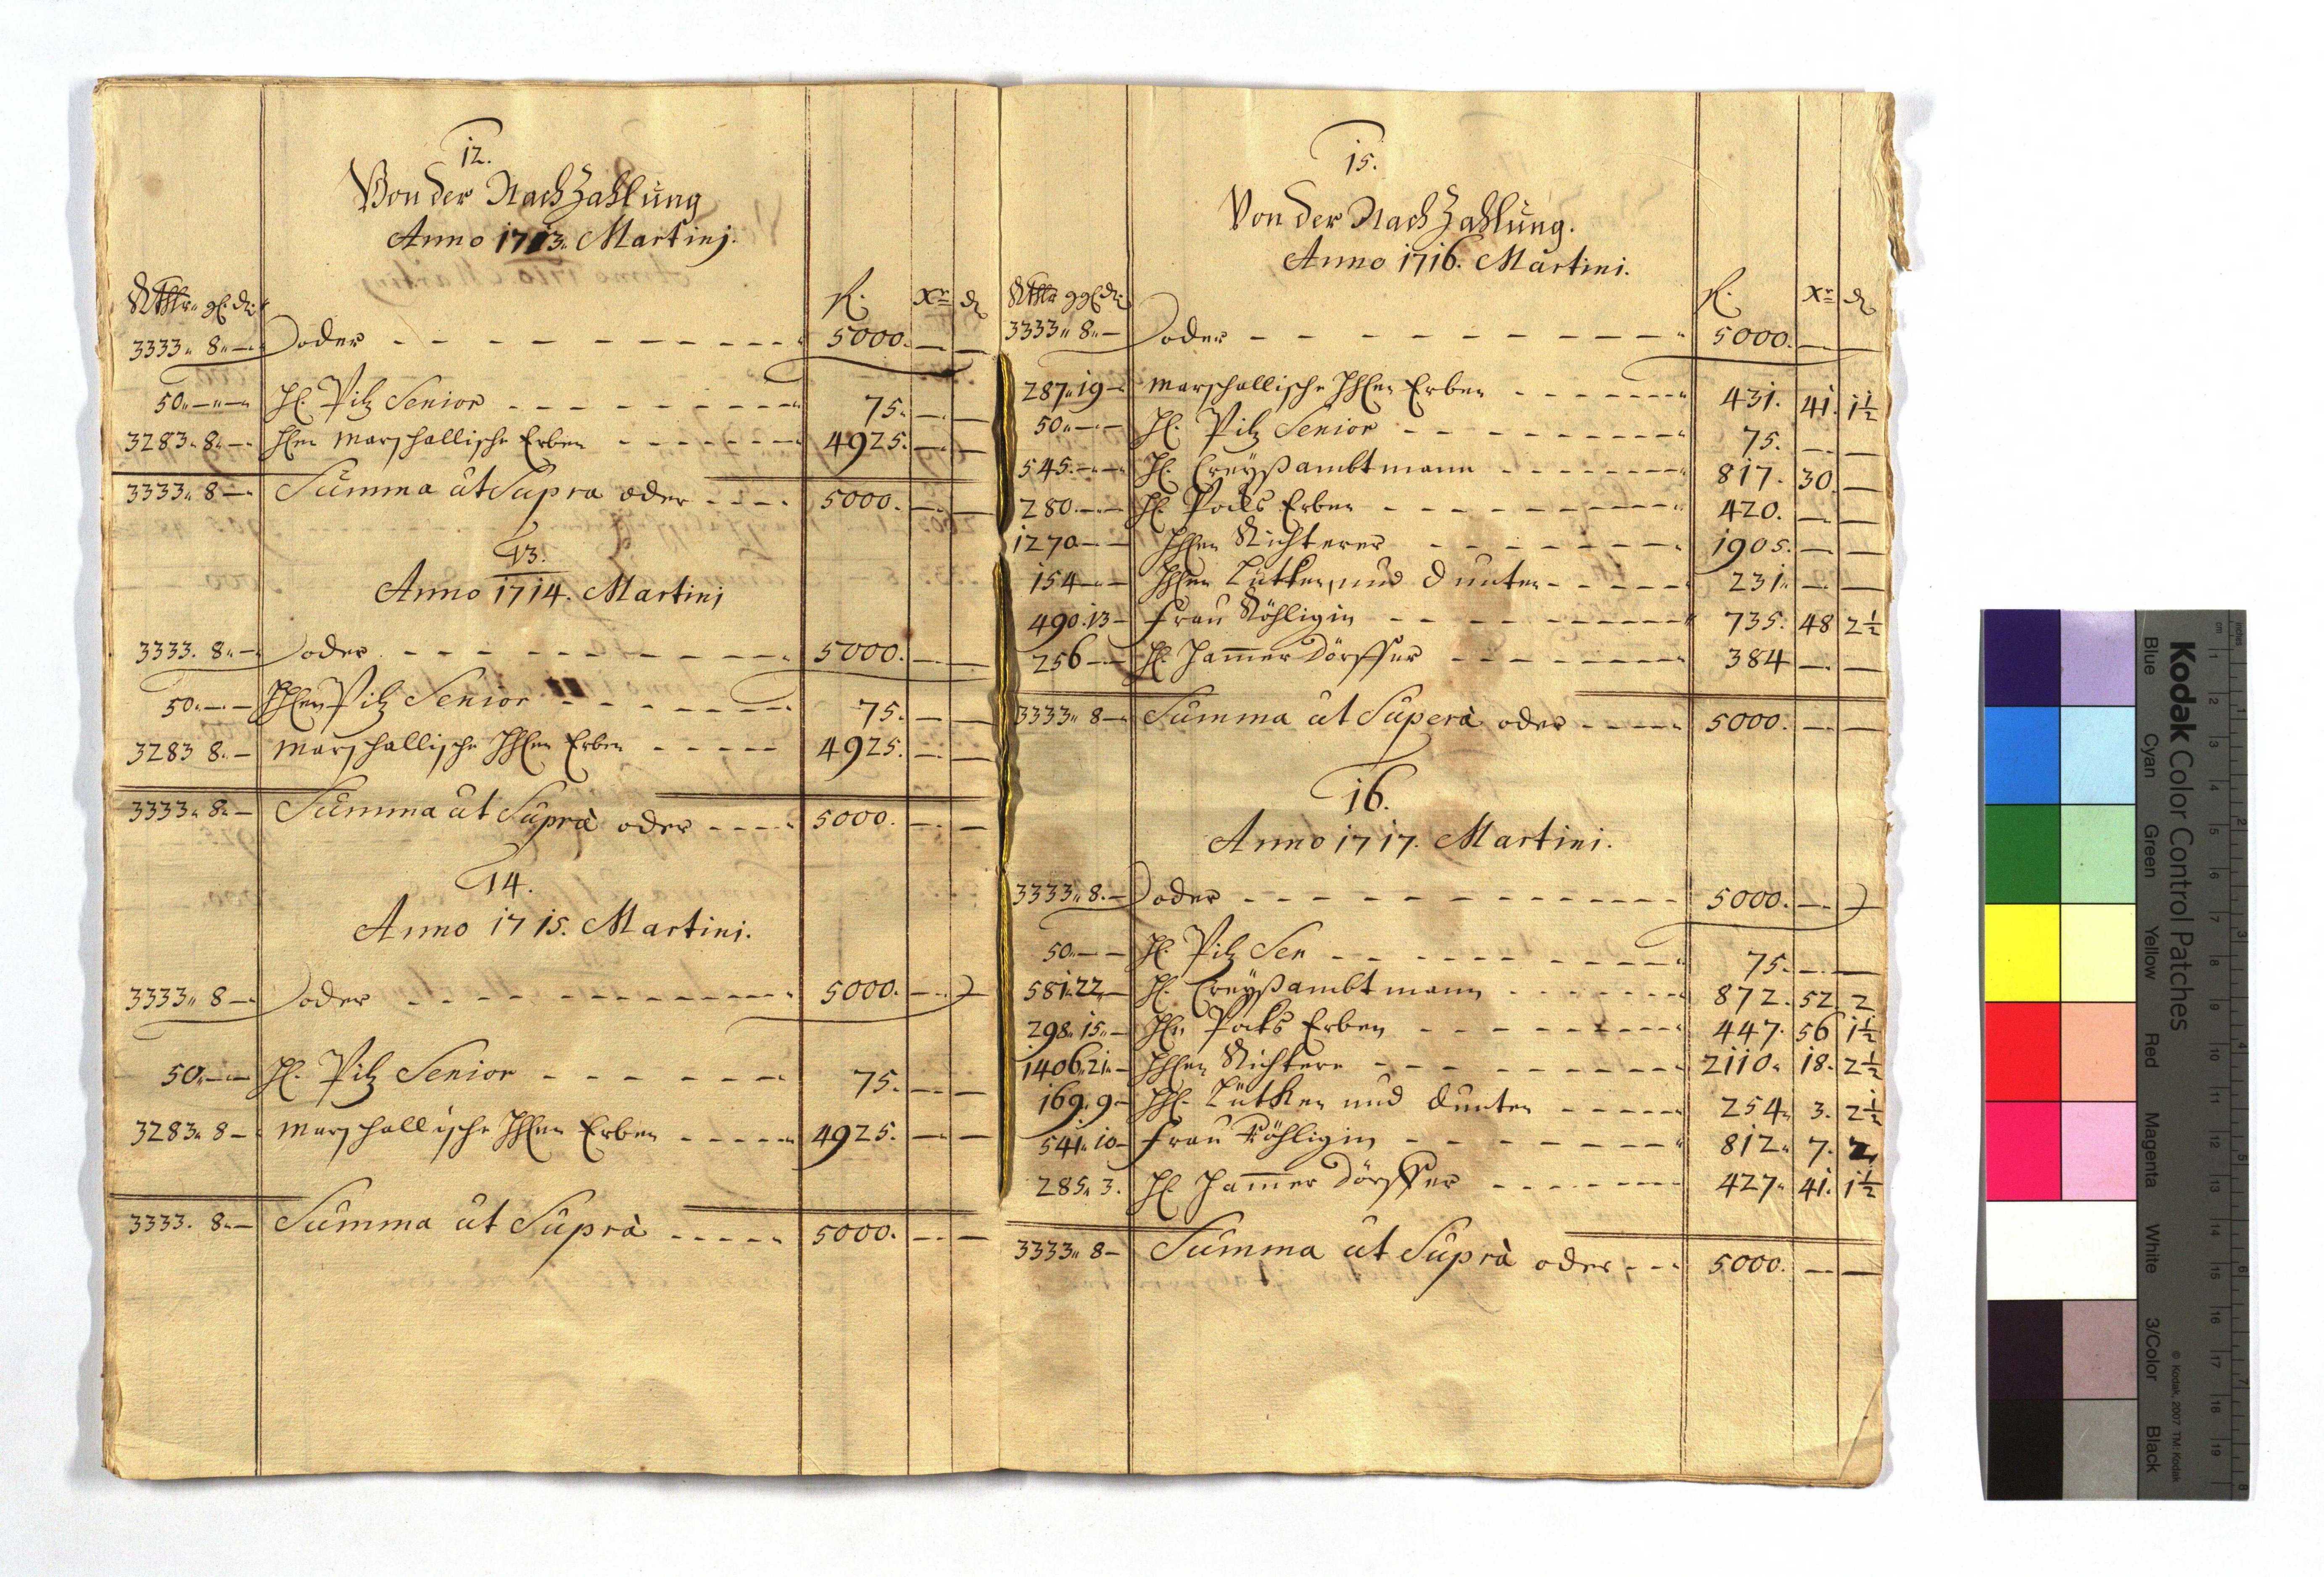 12.
Von der Nachzahlung
Anno 1713. Martinj.
Rthlr. gl. dr. fl. Xr. d
3333. 8. — oder 5000. — —
50. — — H. Pilz Senior 75. — —
3283. 8. — Hhen Marschallische Erben 4925. — —
3333. 8 — Summa ut Supra oder 5000. — —
13.
Anno 1714. Martinj
3333. 8. — oder 5000. — —
50. — — Hhen Pilz Senior 75. — —
3283 8. — Marschallische Hhen Erben 4925. — —
3333. 8. — Summa ut Suprà oder 5000. — —
14.
Anno 1715. Martini.
3333. 8 — oder 5000. — —
50. — — H. Pilz Senior 75. — —
3283. 8 — Marschallische Hhen Erben 4925. — —
3333. 8. — Summa ut Suprà 5000. — —
15.
Von der Nachzahlung.
Anno 1716. Martini.
Rthlr ggl. dr. fl. Xr. d
3333. 8. — oder 5000. — —
287. 19 — Marschallische Hhen Erben 431. 41. 1½
50. — — H. Pilz Senior 75. — —
545. — — H. Creyßambtmann 817. 30. —
280. — — H. Pocks Erben 420. — —
1270 — — Hhen Richterer 1905. — —
154 — — Hhen Lütken, und Dunten 231. — —
490. 13 — Frau Röhligin 735. 48 2½
256 — — H. Jammerdörffer 384 — —
3333. 8 — Summa ut Superà oder 5000. — —
16.
Anno 1717. Martini.
3333. 8. — oder 5000. — —
50. — — H. Pilz Sen 75. — —
581. 22. — H. Creyßambtmann 872. 52. 2
298. 15. — Hhn Pocks Erben 447. 56 1½
1406. 21. — Hhen Richtern 2110. 18. 2½
169. 9 — Hh. Lütken und Dunten 254. 3. 2½
541. 10 — Frau Röhligin 812. 7. 2
285. 3. H. Jammerdörffer 427. 41. 1½
3333. 8 — Summa ut Suprà oder 5000. — —
Kodak Color Control Patches
© Kodak, 2007 TM: Kodak
Blue Cyan Green Yellow Red Magenta White 3/Color Black
cm 1 2 3 4 5 6 7 8 9 10 11 12 13 14 15 16 17 18 19
inches 1 2 3 4 5 6 7 8